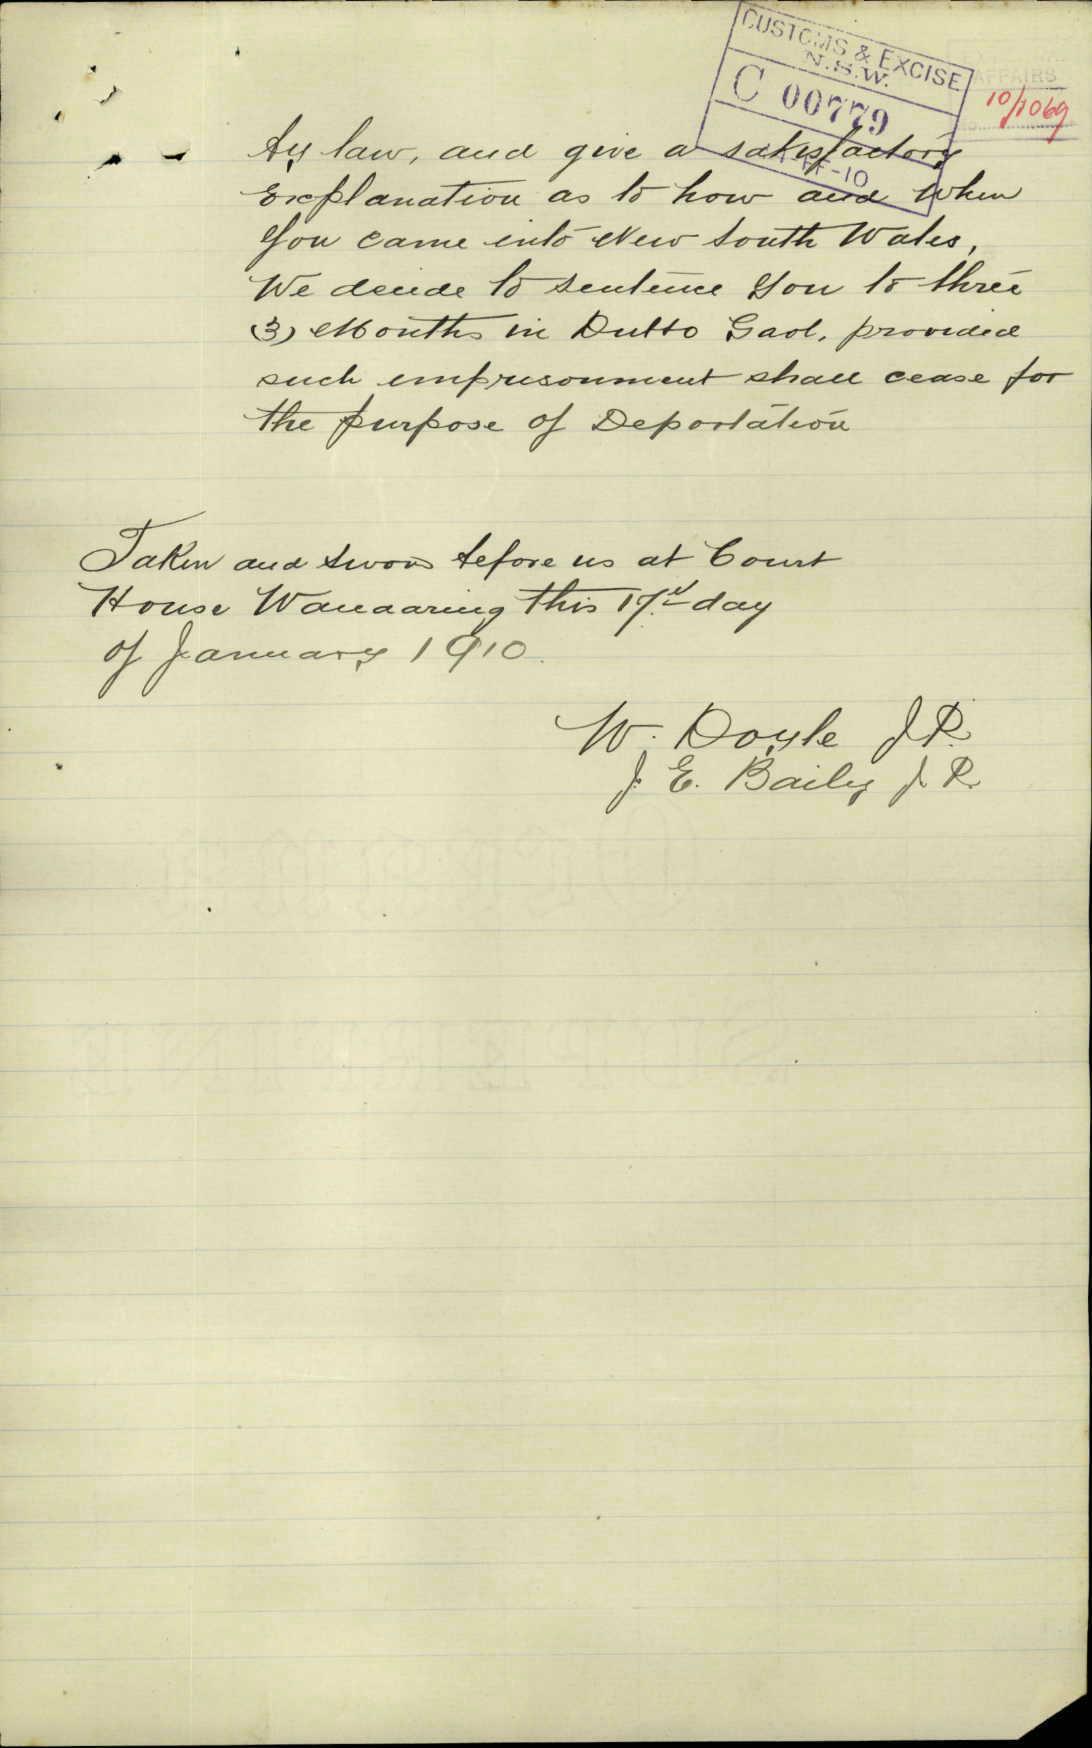 CUSTOMS & EXCISE
N.S.W.
C 00779
AFFAIRS
10/1069
by law, and give a satisfactory
Explanation as to how and when
you came into New South Wales,
We decide to sentence you to three
(3) Months in Dubbo Gaol, provided
such imprisonment shall cease for
the purpose of Deportation
Taken and sworn before us at Court
House Wanaaring this 17th day
of January 1910.
W. Doyle J.P.
J. E. Baily J.P.
SUPERFINE